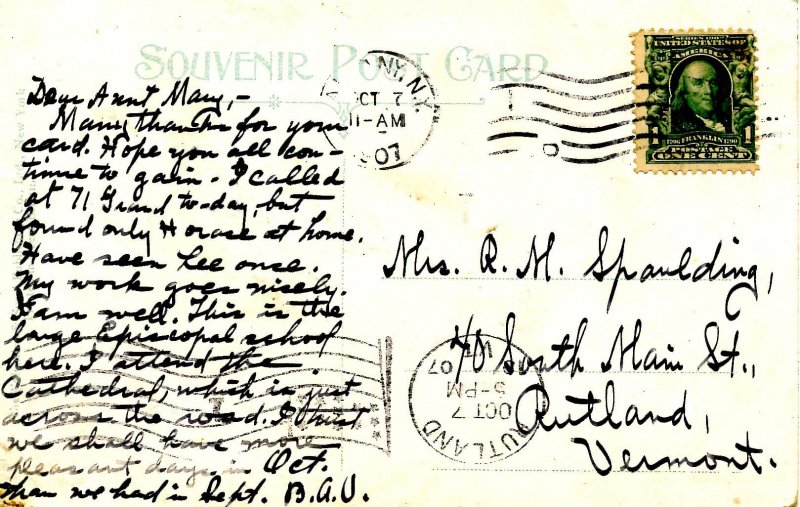 SOUVENIR POST CARD
Dear Aunt Mary,-
Many thanks for your
card. Hope you all con-
tinue to gain. I called
at 71 Grand to-day, but
found only Horace at home.
Have seen Lee once.
My work goes nicely.
I am well. This is the
large Episcopal school
here. I attend the
Cathedral, which is just
across the road. I trust
we shall have more
pleasant days in Oct.
than we had in Sept. B.A.V.
NY, N.Y.
OCT 7
11-AM
1907
SERIES 1902
UNITED STATES OF
1
FRANKLIN
1
POSTAGE
ONE CENT
Mrs. R. M. Spaulding,
70 South Main St.,
Rutland,
Vermont.
RUTLAND
OCT 7
5-PM
07